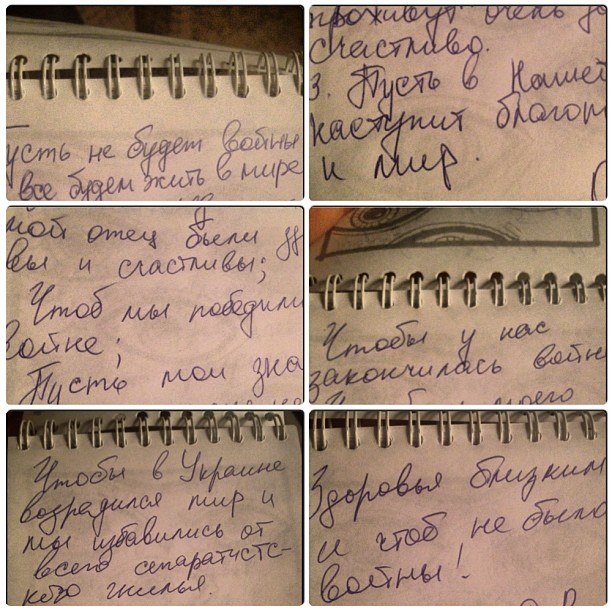 Пусть не будет войны
все будем жить в мире
проживут очень до
счастливо.
3. Пусть в нашей
наступит благоп
и мир.
мой отец были зд
вы и счастливы;
Чтоб мы победили
войне;
Пусть мои зна
Чтобы у нас
закончилась войн
моего
Чтобы в Украине
возрадился мир и
мы избавились от
всего сепаратистс-
кого гнилья.
Здоровья близким
и чтоб не было
войны!